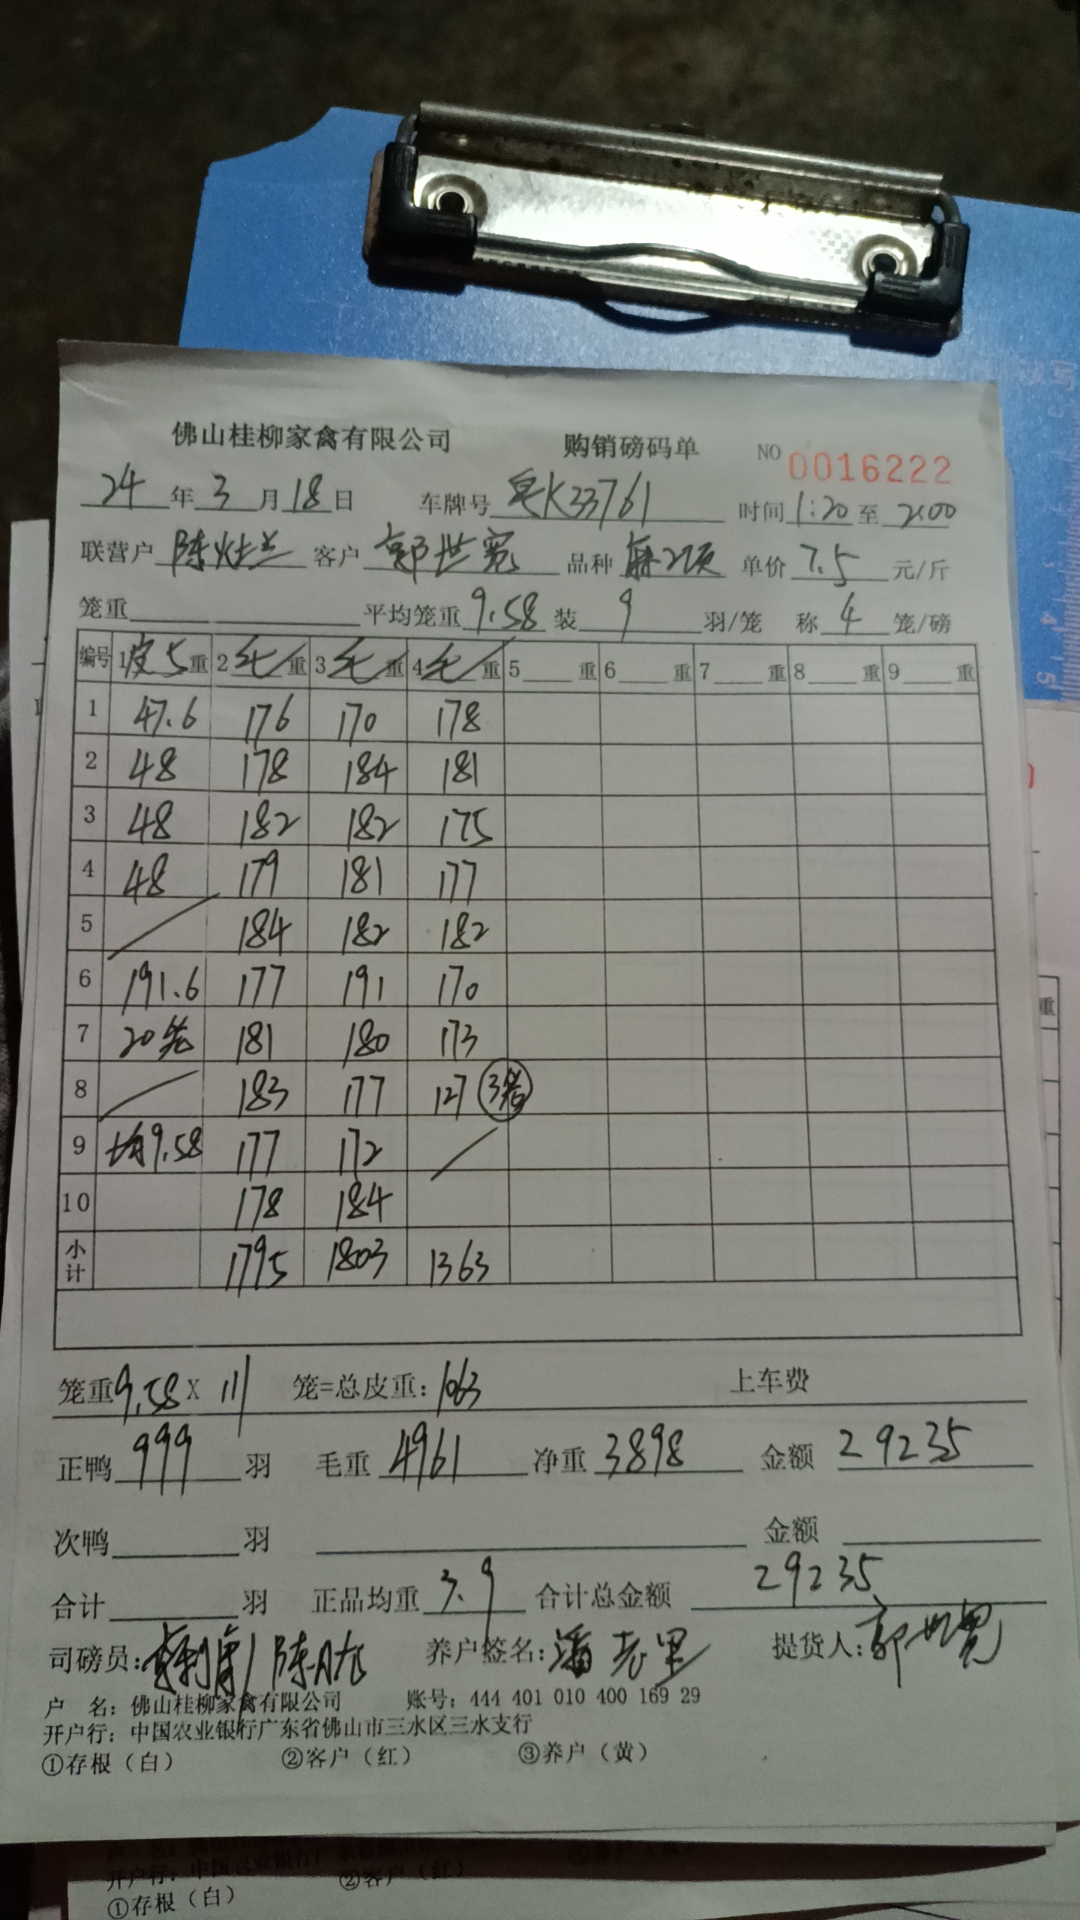 佛山桂柳家禽有限公司 购销磅码单 NO 0016222
24年3月18日 车牌号 K33761 时间1:20至2:00
联营户 陈灶兰 客户 郭世宽 品种 单价7.5元/斤
笼重 平均笼重9.58装9羽/笼 称4笼/磅
编号 1皮5重 2毛重 3毛重 4毛重 5重 6重 7重 8重 9重
1 47.6 176 170 178
2 48 178 184 181
3 48 182 182 175
4 48 179 181 177
5 184 182 182
6 191.6 177 191 170
7 20笼 181 180 173
8 183 177 127 3笼
9 均9.58 177 172
10 178 184
小计 1795 1803 1363
笼重9.58X111笼=总皮重:1063 上车费
正鸭999羽 毛重4961 净重3898 金额29235
次鸭 羽 金额
合计 羽 正品均重3.9 合计总金额29235
司磅员: 养户签名: 提货人:郭世宽
户 名: 佛山桂柳家禽有限公司 账号: 444 401 010 400 169 29
开户行: 中国农业银行广东省佛山市三水区三水支行
①存根(白) ②客户(红) ③养户(黄)
开户行: 中国农业银行 ②客户(红)
①存根(白)